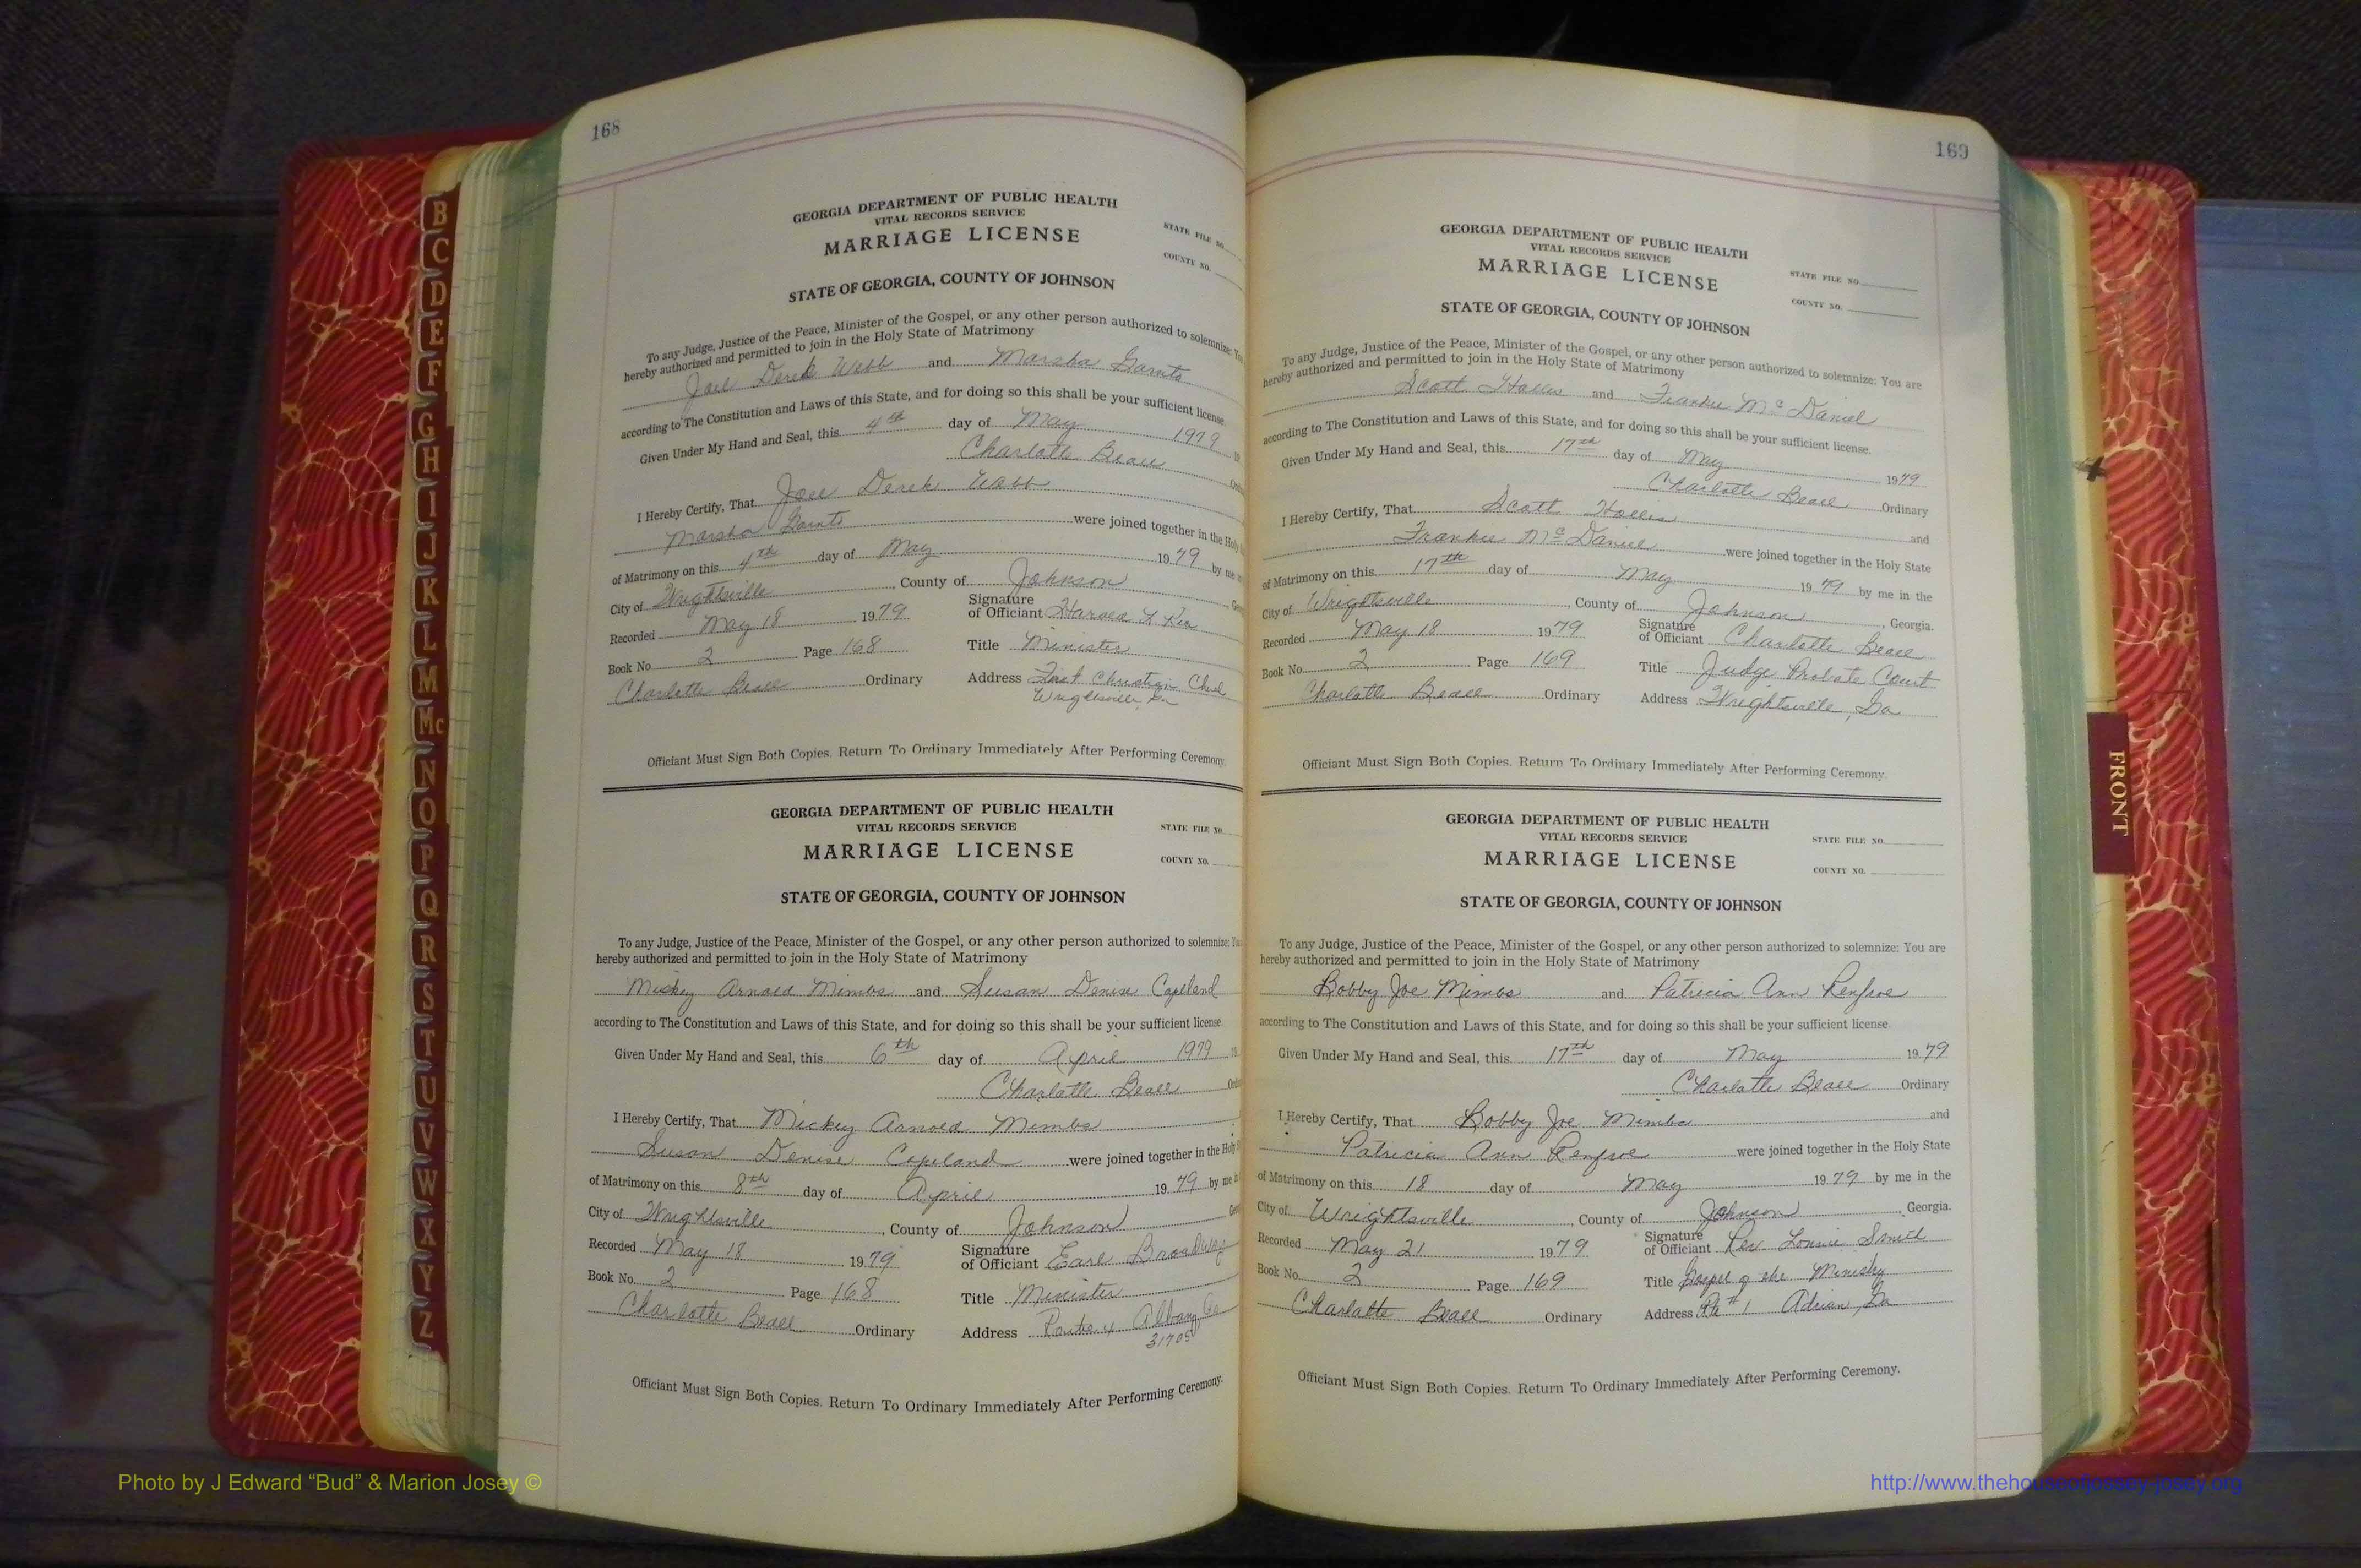 168
GEORGIA DEPARTMENT OF PUBLIC HEALTH
VITAL RECORDS SERVICE
MARRIAGE LICENSE
STATE FILE NO.
COUNTY NO.
STATE OF GEORGIA, COUNTY OF JOHNSON
To any Judge, Justice of the Peace, Minister of the Gospel, or any other person authorized to solemnize: You
hereby authorized and permitted to join in the Holy State of Matrimony
Joel Derek Webb and Marsha
according to The Constitution and Laws of this State, and for doing so this shall be your sufficient license.
Given Under My Hand and Seal, this 4th day of May 1979
Charlotte Beall
I Hereby Certify, That Joel Derek Webb
Marsha were joined together in the Holy
of Matrimony on this 4th day of May 1979 by me in
City of Wrightsville, County of Johnson
Recorded May 18 1979 Signature of Officiant Harold
Book No. 2 Page 168 Title Minister
Charlotte Beall Ordinary Address First Christian
Wrightsville, Ga
Officiant Must Sign Both Copies. Return To Ordinary Immediately After Performing Ceremony.
GEORGIA DEPARTMENT OF PUBLIC HEALTH
VITAL RECORDS SERVICE
MARRIAGE LICENSE
STATE FILE NO.
COUNTY NO.
STATE OF GEORGIA, COUNTY OF JOHNSON
To any Judge, Justice of the Peace, Minister of the Gospel, or any other person authorized to solemnize: You
hereby authorized and permitted to join in the Holy State of Matrimony
Mickey Arnold Mimbs and Susan Denise Copeland
according to The Constitution and Laws of this State, and for doing so this shall be your sufficient license.
Given Under My Hand and Seal, this 6th day of April 1979
Charlotte Beall
I Hereby Certify, That Mickey Arnold Mimbs
Susan Denise Copeland were joined together in the Holy
of Matrimony on this 8th day of April 1979 by me in
City of Wrightsville, County of Johnson
Recorded May 18 1979 Signature of Officiant Earl Broadway
Book No. 2 Page 168 Title Minister
Charlotte Beall Ordinary Address Albany Ga
31705
Officiant Must Sign Both Copies. Return To Ordinary Immediately After Performing Ceremony.
169
GEORGIA DEPARTMENT OF PUBLIC HEALTH
VITAL RECORDS SERVICE
MARRIAGE LICENSE
STATE FILE NO.
COUNTY NO.
STATE OF GEORGIA, COUNTY OF JOHNSON
To any Judge, Justice of the Peace, Minister of the Gospel, or any other person authorized to solemnize: You are
hereby authorized and permitted to join in the Holy State of Matrimony
Scott Hollis and Frankie McDaniel
according to The Constitution and Laws of this State, and for doing so this shall be your sufficient license.
Given Under My Hand and Seal, this 17th day of May 1979
Charlotte Beall Ordinary
I Hereby Certify, That Scott Hollis and
Frankie McDaniel were joined together in the Holy State
of Matrimony on this 17th day of May 1979 by me in the
City of Wrightsville, County of Johnson, Georgia.
Recorded May 18 1979 Signature of Officiant Charlotte Beall
Book No. 2 Page 169 Title Judge Probate Court
Charlotte Beall Ordinary Address Wrightsville, Ga
Officiant Must Sign Both Copies. Return To Ordinary Immediately After Performing Ceremony.
GEORGIA DEPARTMENT OF PUBLIC HEALTH
VITAL RECORDS SERVICE
MARRIAGE LICENSE
STATE FILE NO.
COUNTY NO.
STATE OF GEORGIA, COUNTY OF JOHNSON
To any Judge, Justice of the Peace, Minister of the Gospel, or any other person authorized to solemnize: You are
hereby authorized and permitted to join in the Holy State of Matrimony
Bobby Joe Mimbs and Patricia Ann Renfroe
according to The Constitution and Laws of this State, and for doing so this shall be your sufficient license
Given Under My Hand and Seal, this 17th day of May 1979
Charlotte Beall Ordinary
I Hereby Certify, That Bobby Joe Mimbs and
Patricia Ann Renfroe were joined together in the Holy State
of Matrimony on this 18 day of May 1979 by me in the
City of Wrightsville, County of Johnson, Georgia.
Recorded May 21 1979 Signature of Officiant Rev Lonnie Smith
Book No. 2 Page 169 Title Gospel of the
Charlotte Beall Ordinary Address Rt #1 Adrian, Ga
Officiant Must Sign Both Copies. Return To Ordinary Immediately After Performing Ceremony.
B
C
D
E
F
G
H
I
J
K
L
M
Mc
N
O
P
Q
R
S
T
U
V
W
X
Y
Z
FRONT
Photo by J Edward “Bud” & Marion Josey ©
http://www.thehouseofjossey-josey.org